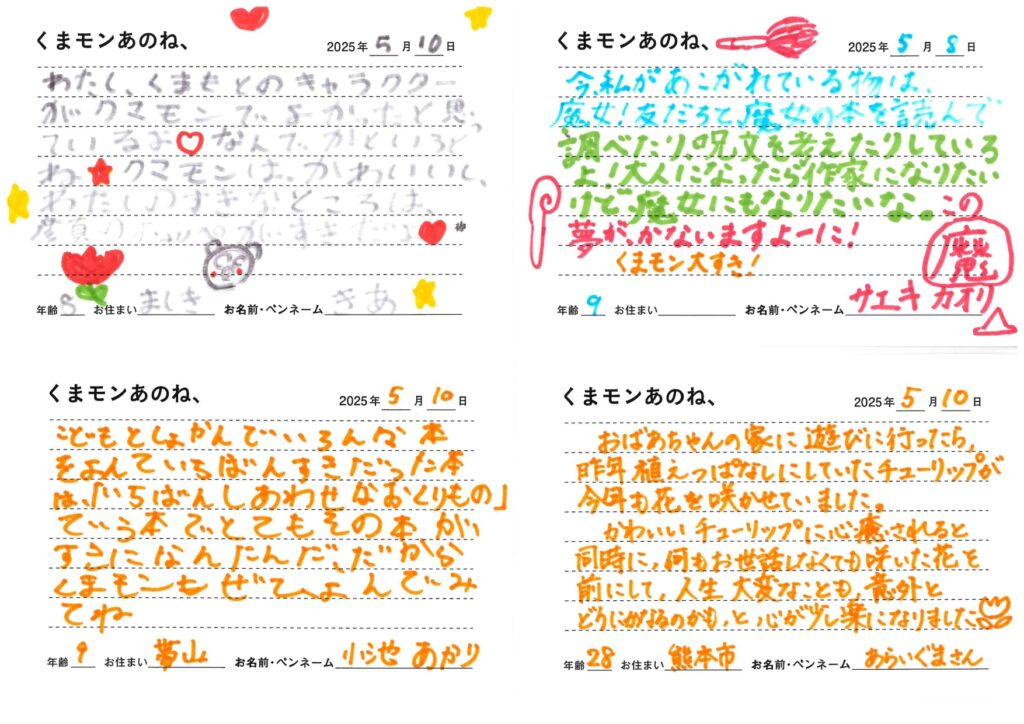 くまモンあのね、
2025年 5月 10日
わたし、くまもとのキャラクター
がクマモンでよかったと思っ
ているよ なんでかというと
ね クマモンは、かわいいし、
わたしのすきなところは、
年齢 8 お住まい ましき お名前・ペンネーム きあ
くまモンあのね、
2025年 5月 8日
今、私があこがれている物は、
魔女!友だちと魔女の本を読んで
調べたり、呪文を考えたりしている
よ!大人になったら作家になりたい
けど魔女にもなりたいな。この
夢が、かないますよーに!
くまモン大すき!
魔
年齢 9 お住まい お名前・ペンネーム サエキ カオリ
くまモンあのね、
2025年 5月 10日
こどもとしょかんでいろんな本
をよんでいちばんすきだった本
は、「いちばんしあわせなおくりもの」
でいう本でとてもその本がい
すきになんたんだ、だから
くまモンもぜひよんでみ
てね
年齢 9 お住まい 夢山 お名前・ペンネーム 小池 あかり
くまモンあのね、
2025年 5月 10日
おばあちゃんの家に遊びに行ったら、
昨年植えっぱなしにしていたチューリップが
今年も花を咲かせていました。
かわいいチューリップに心癒されると
同時に、何もお世話しなくても咲いた花を
前にして、人生大変なことも、意外と
どうにかなるのかも、と心が少し楽になりました
年齢 28 お住まい 熊本市 お名前・ペンネーム あらいぐまさん